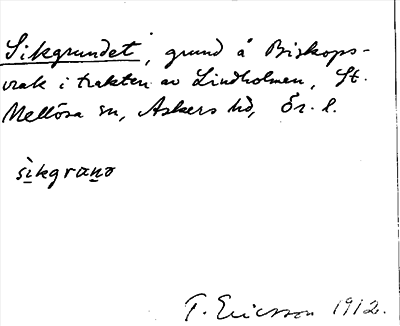 Sikgrundet, grund å Biskops-
vrak i trakten av Lindholmen, St.
Mellösa sn, Askers hd, Ör. l.
sìkgrano
T. Ericsson 1912.